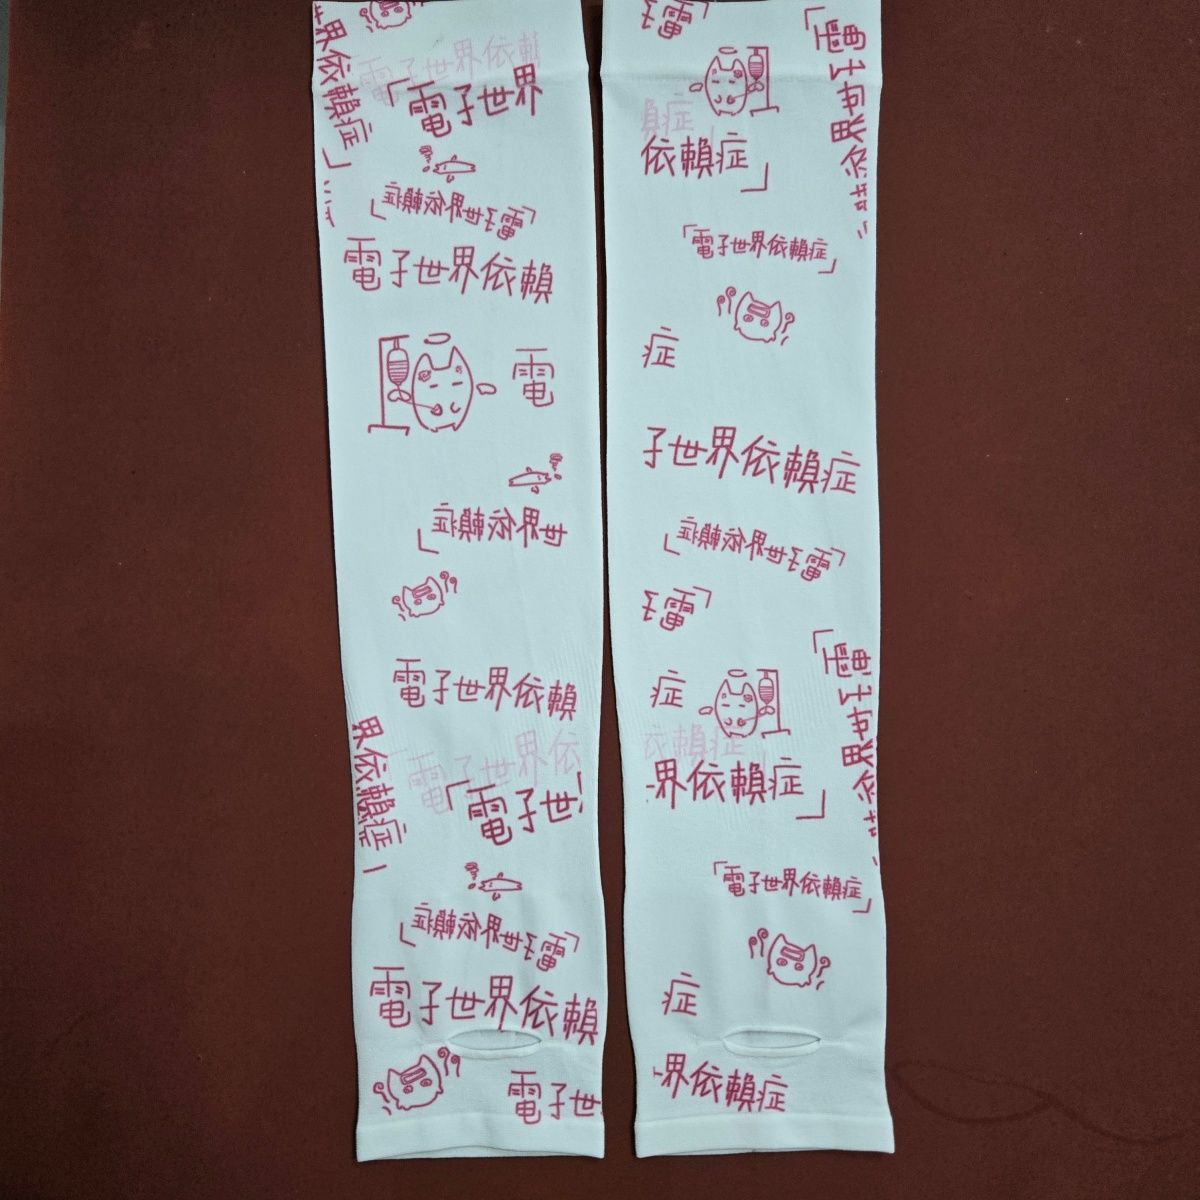 界依賴症」
電子世界依賴
「電子世界
「電子世界依賴症」
電子世界依賴
電
世界依賴症」
電子世界依賴
界依賴症
電子世界依
「電子世
「電子世界依賴症」
電子世界依賴
電子世
「電子
「電子世界依
賴症
依賴症」
「電子世界依賴症」
症
子世界依賴症
「電子世界依賴症」
「電子
「電子世界依
症
依賴症」
界依賴症」
「電子世界依賴症」
症
界依賴症